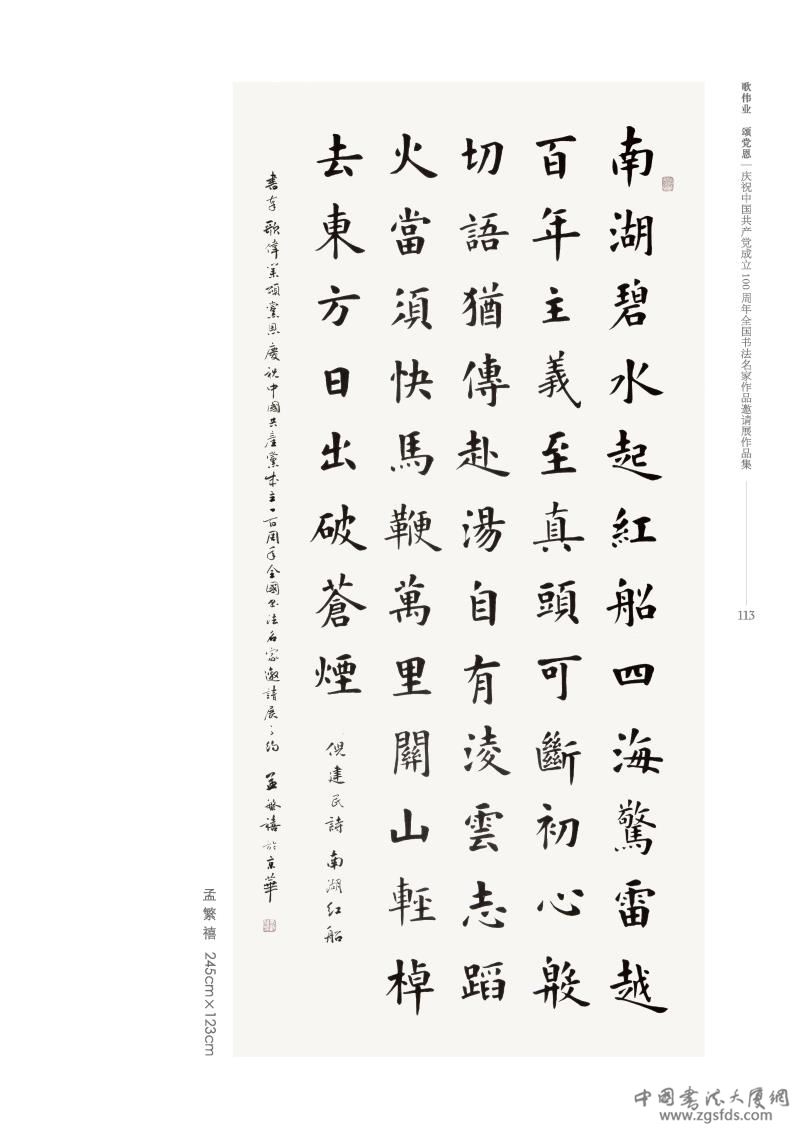 歌伟业 颂党恩 | 庆祝中国共产党成立100周年全国书法名家作品邀请展作品集
113
南湖碧水起紅船四海驚雷越
百年主義至真頭可斷初心殷
切語猶傳赴湯自有淩雲志蹈
火當須快馬鞭萬里關山輕棹
去東方日出破蒼煙
倪建民詩 南湖红船
書奉歌偉業頌黨恩慶祝中國共產黨成立一百周年全國书法名家邀請展之约 孟繁禧於京華
孟繁禧 245cm×123cm
中国书法大厦網
www.zgsfds.com